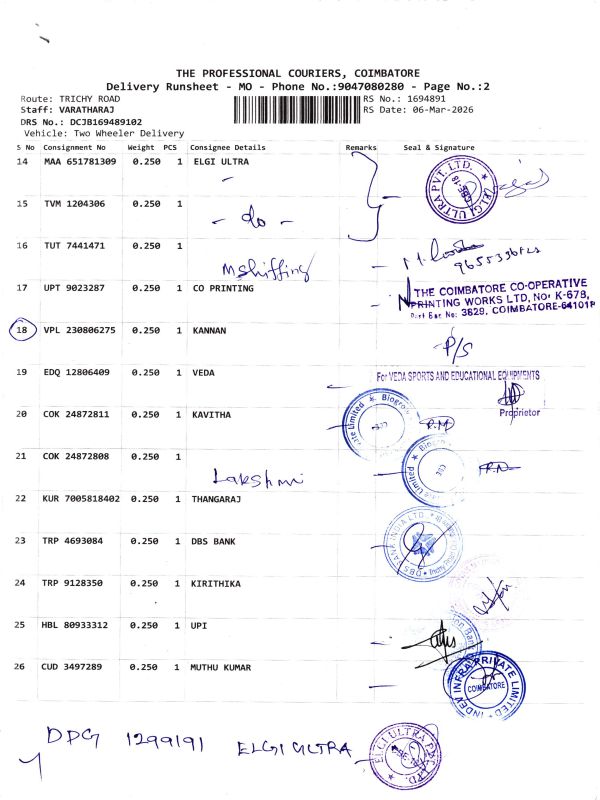 THE PROFESSIONAL COURIERS, COIMBATORE
Delivery Runsheet - MO - Phone No.:9047080280 - Page No.:2
Route: TRICHY ROAD
RS No.: 1694891
Staff: VARATHARAJ
RS Date: 06-Mar-2026
DRS No.: DCJB169489102
Vehicle: Two Wheeler Delivery
S No Consignment No Weight PCS Consignee Details Remarks Seal & Signature
14 MAA 651781309 0.250 1 ELGI ULTRA
ELGI ULTRA PVT. LTD.
CBE-18
15 TVM 1204306 0.250 1
- do -
16 TUT 7441471 0.250 1
17 UPT 9023287 0.250 1 CO PRINTING
THE COIMBATORE CO-OPERATIVE
PRINTING WORKS LTD, No: K-678,
Post Bag No: 3829, COIMBATORE-64101
18 VPL 230806275 0.250 1 KANNAN
P/S
19 EDQ 12806409 0.250 1 VEDA
For VEDA SPORTS AND EDUCATIONAL EQUIPMENTS
Proprietor
20 COK 24872811 0.250 1 KAVITHA
21 COK 24872808 0.250 1
Lakshmi
22 KUR 7005818402 0.250 1 THANGARAJ
23 TRP 4693084 0.250 1 DBS BANK
DBS BANK INDIA LTD.
24 TRP 9128350 0.250 1 KIRITHIKA
25 HBL 80933312 0.250 1 UPI
26 CUD 3497289 0.250 1 MUTHU KUMAR
INDEV INFRA PRIVATE LIMITED
COIMBATORE
DPG 1299191 ELGI ULTRA
ELGI ULTRA PVT. LTD.